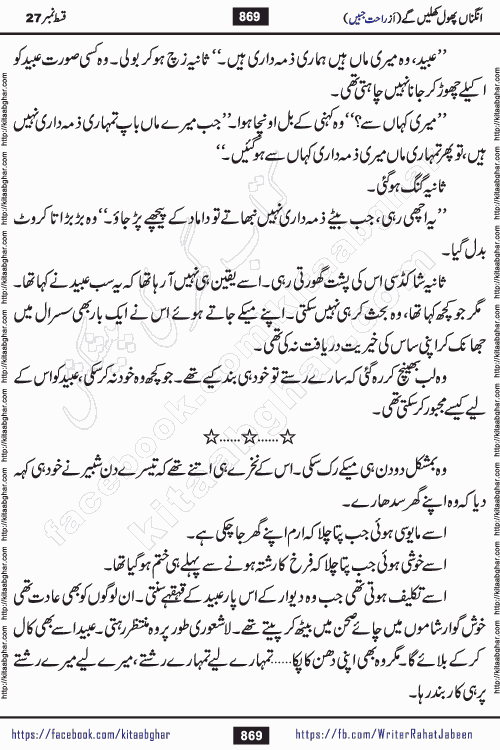 انگناں پھول کھلیں گے (از راحت جبیں)
869
قسط نمبر 27
’’عبید، وہ میری ماں ہیں ہماری ذمہ داری ہیں۔‘‘ ثانیہ زچ ہو کر بولی۔ وہ کسی صورت عبید کو
اکیلے چھوڑ کر جانا نہیں چاہتی تھی۔
’’میری کہاں سے؟‘‘ وہ کہنی کے بل اونچا ہوا۔ ’’جب میرے ماں باپ تمہاری ذمہ داری نہیں
ہیں، تو پھر تمہاری ماں میری ذمہ داری کہاں سے ہو گئیں۔‘‘
ثانیہ گنگ ہو گئی۔
’’یہ اچھی رہی، جب بیٹے ذمہ داری نہیں نبھاتے تو داماد کے پیچھے پڑ جاؤ۔‘‘ وہ بڑبڑاتا کروٹ
بدل گیا۔
ثانیہ شاکڈ سی اس کی پشت گھورتی رہی۔ اسے یقین ہی نہیں آ رہا تھا کہ یہ سب عبید نے کہا تھا۔
مگر جو کچھ کہا تھا، وہ بحث کر ہی نہیں سکتی۔ اپنے میکے جاتے ہوئے اس نے ایک بار بھی سسرال میں
جھانک کر اپنی ساس کی خیریت دریافت نہ کی تھی۔
وہ لب بھینچ کر رہ گئی کہ سارے رستے تو خود ہی بند کیے تھے۔ جو کچھ وہ خود نہ کر سکی، عبید کو اس کے
لیے کیسے مجبور کر سکتی تھی۔
☆......☆......☆
وہ بمشکل دو دن ہی میکے رک سکی۔ اس کے نخرے ہی اتنے تھے کہ تیسرے دن شبیر نے خود ہی کہہ
دیا کہ وہ اپنے گھر سدھارے۔
اسے مایوسی ہوئی جب پتا چلا کہ ارم اپنے گھر جا چکی ہے۔
اسے خوشی ہوئی جب پتا چلا کہ فرخ کا رشتہ ہونے سے پہلے ہی ختم ہو گیا تھا۔
اسے تکلیف ہوتی تھی جب وہ دیوار کے اس پار عبید کے قہقہے سنتی۔ ان لوگوں کو بھی عادت تھی
خوش گوار شاموں میں چائے صحن میں بیٹھ کر پیتے تھے۔ لاشعوری طور پر وہ منتظر رہتی۔ عبید اسے بھی کال
کر کے بلائے گا۔ مگر وہ بھی اپنی دھن کا پکا......تمہارے لیے تمہارے رشتے، میرے لیے میرے رشتے
پر ہی کاربند رہا۔
https://facebook.com/kitaabghar
869
https://fb.com/WriterRahatJabeen
http://kitaabghar.com
کتاب گھر کی پیشکش
facebook.com/kitaabghar
kitaabghar.com